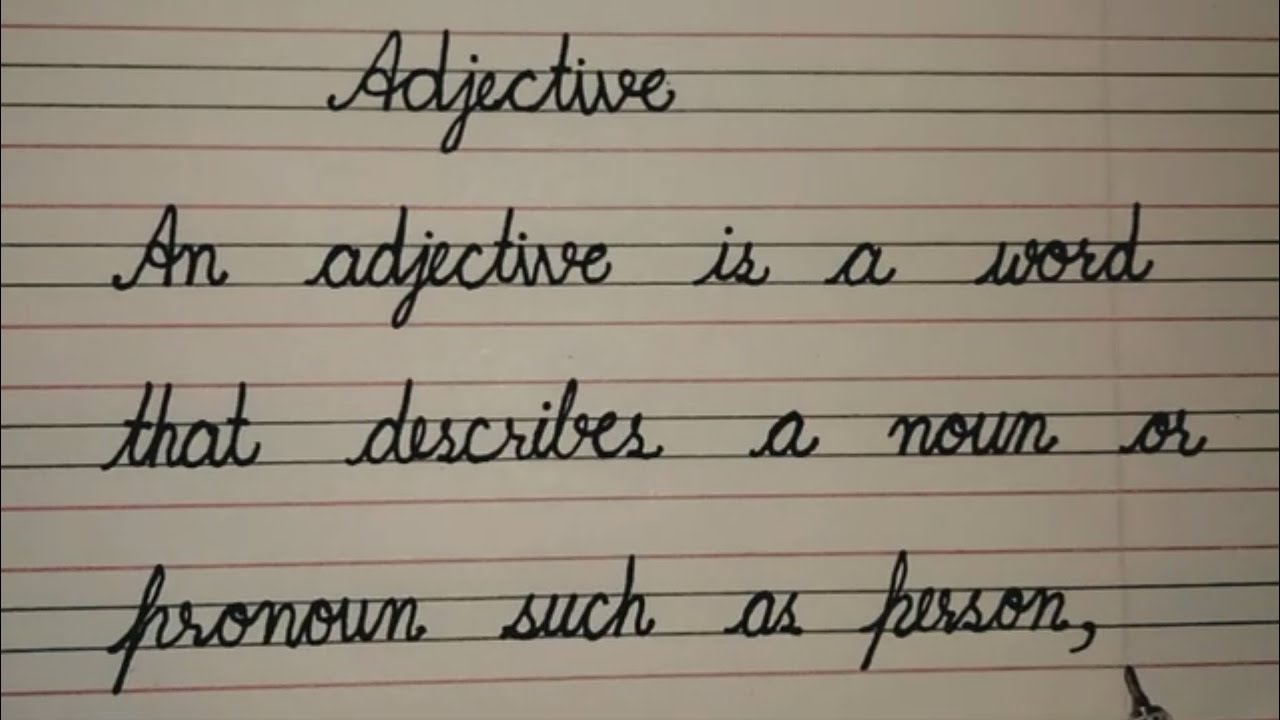 Adjective
An adjective is a word
that describes a noun or
pronoun such as person,